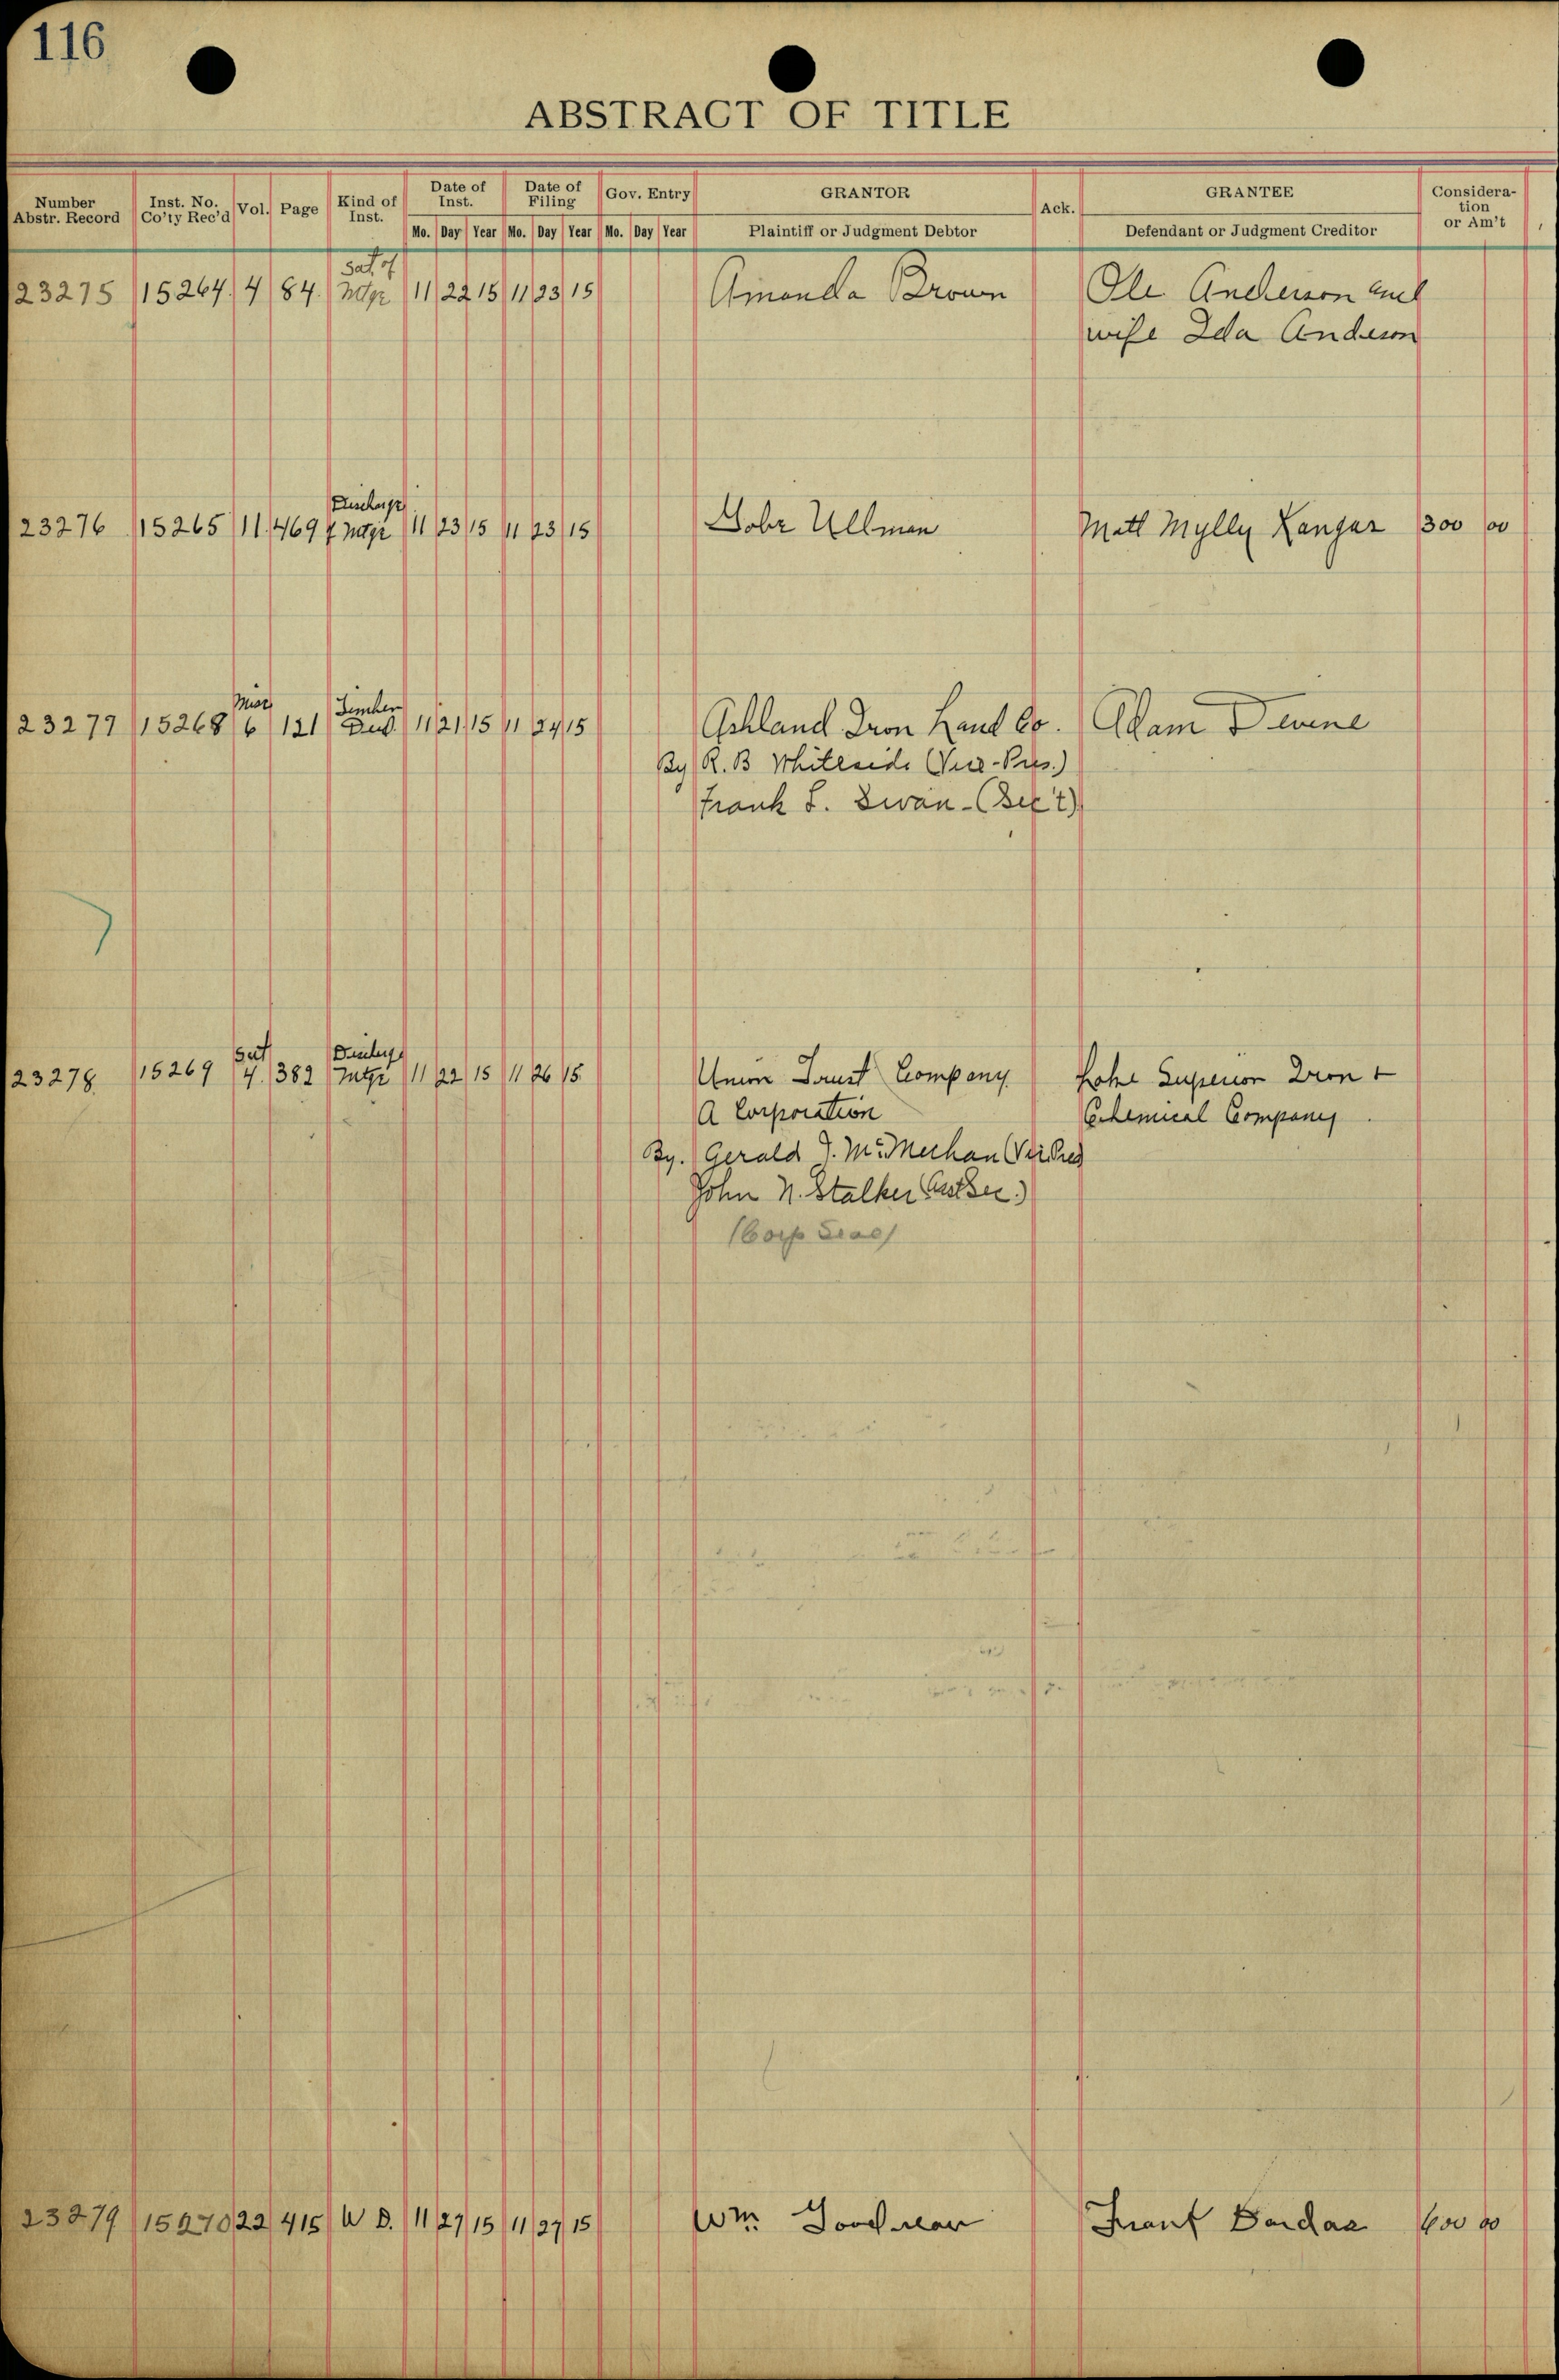 116
ABSTRACT OF TITLE
Number Abstr. Record Inst. No. Co'ty Rec'd Vol. Page Kind of Inst. Date of Inst. Date of Filing Gov. Entry GRANTOR Ack. GRANTEE Consideration or Am't
Mo. Day Year Mo. Day Year Mo. Day Year Plaintiff or Judgment Debtor Defendant or Judgment Creditor
Sat of
23275 15264 4 84 Mtge 11 22 15 11 23 15 Amanda Brown Ole Anderson and
wife Ida Anderson
Discharge
23276 15265 11 469 of Mtge 11 23 15 11 23 15 Ullman Matt Mylly Kangas 300 00
Misc Timber
23277 15268 6 121 Deed 11 21 15 11 24 15 Ashland Iron Land Co. Adam Devine
By R. B Whiteside (Vice-Pres.)
Frank L. Swan - (Sec't)
Sat Discharge
23278 15269 4. 382 Mtge 11 22 15 11 26 15 Union Trust Company Lake Superior Iron +
A Corporation Chemical Company
By. Gerald J. McMechan (Vice Pres
John N. Stalker (Asst Sec.)
(Corp Seal)
23279 15270 22 415 W D. 11 27 15 11 27 15 Wm. Goodman Frank 600 00